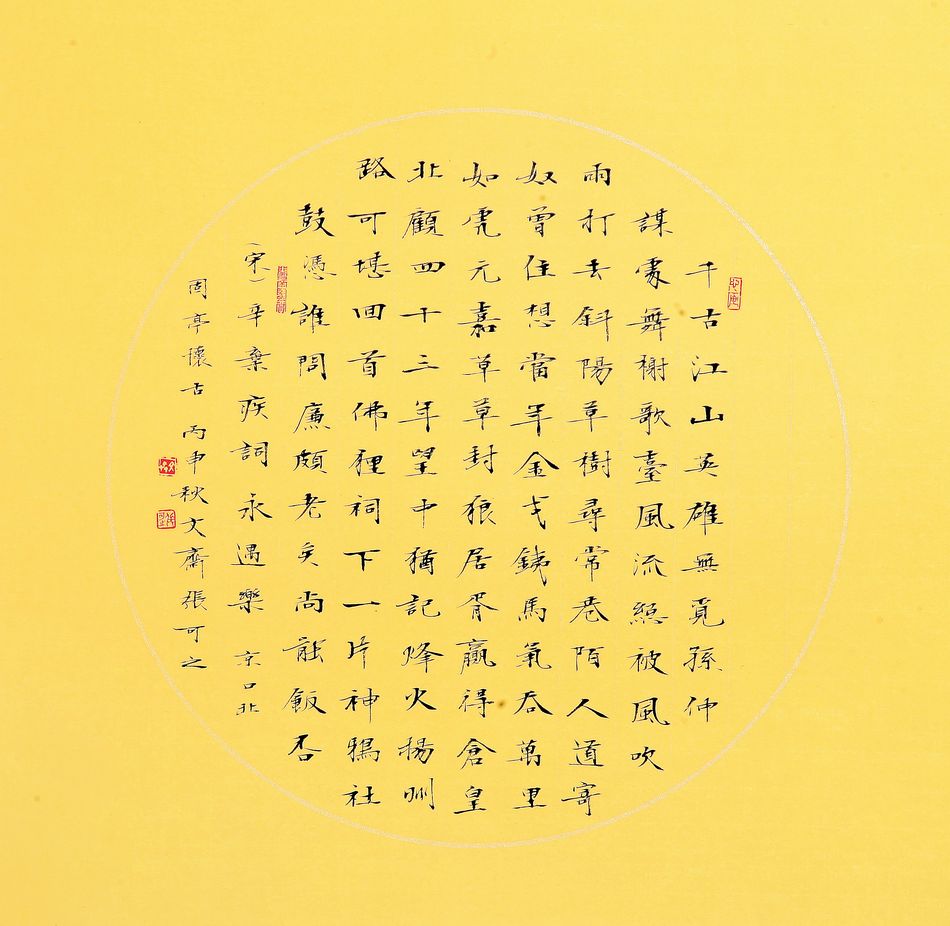 千古江山英雄無覓孫仲
謀處舞榭歌臺風流總被風吹
雨打去斜陽草樹尋常巷陌人道寄
奴曾住想當年金戈鐵馬氣吞萬里
如虎元嘉草草封狼居胥贏得倉皇
北顧四十三年望中猶記烽火揚州
路可堪回首佛狸祠下一片神鴉社
鼓憑誰問廉頗老矣尚能飯否
（宋）辛棄疾詞永遇樂京口北
固亭懷古丙申秋文齋張可之